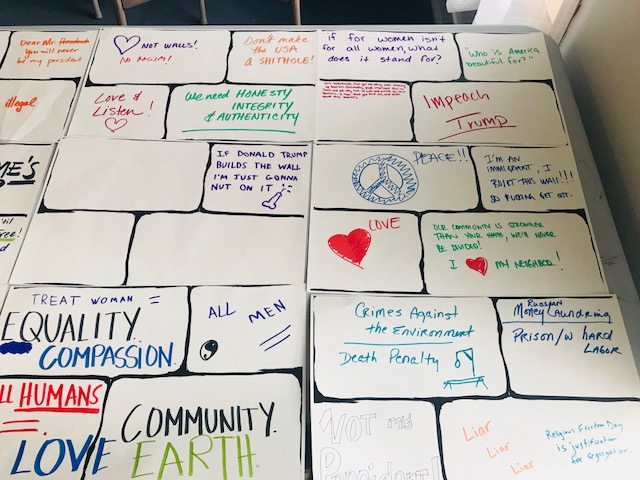 Dear Mr.
You will never
be my president
NOT WALLS!
NO
Don't make
the USA
a SHITHOLE!
if for women isn't
for all women, what
does it stand for?
"Who is America
beautiful for?"
illegal
Love &
Listen!
We need HONESTY
INTEGRITY
& AUTHENTICITY
Impeach
Trump
ME'S
'til
free!
IF DONALD TRUMP
BUILDS THE WALL
I'M JUST GONNA
NUT ON IT
PEACE!!
I'M AN
IMMIGRANT, I
BUILT THIS WALL!!!
SO FUCKING GET OUT.
LOVE
OUR COMMUNITY IS STRONGER
THAN YOUR HATE, WE'LL NEVER
BE DIVIDED!
I MY NEIGHBOR!
TREAT WOMAN =
EQUALITY.
COMPASSION.
ALL MEN
Crimes Against
the Environment
Death Penalty
Russian
Money Laundering
PRISON/W hard
LABOR
LL HUMANS
=
LOVE
COMMUNITY.
EARTH.
NOT my
President!
Liar
Liar
Liar
Religious Freedom Day
is justification
for segregation.